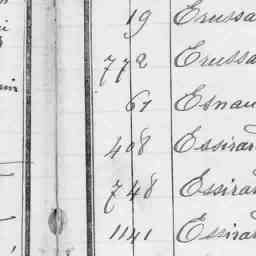 19 Erussa
772 Erussa
61 Esnau
408 Essirar
748 Essirar
1141 Essirar